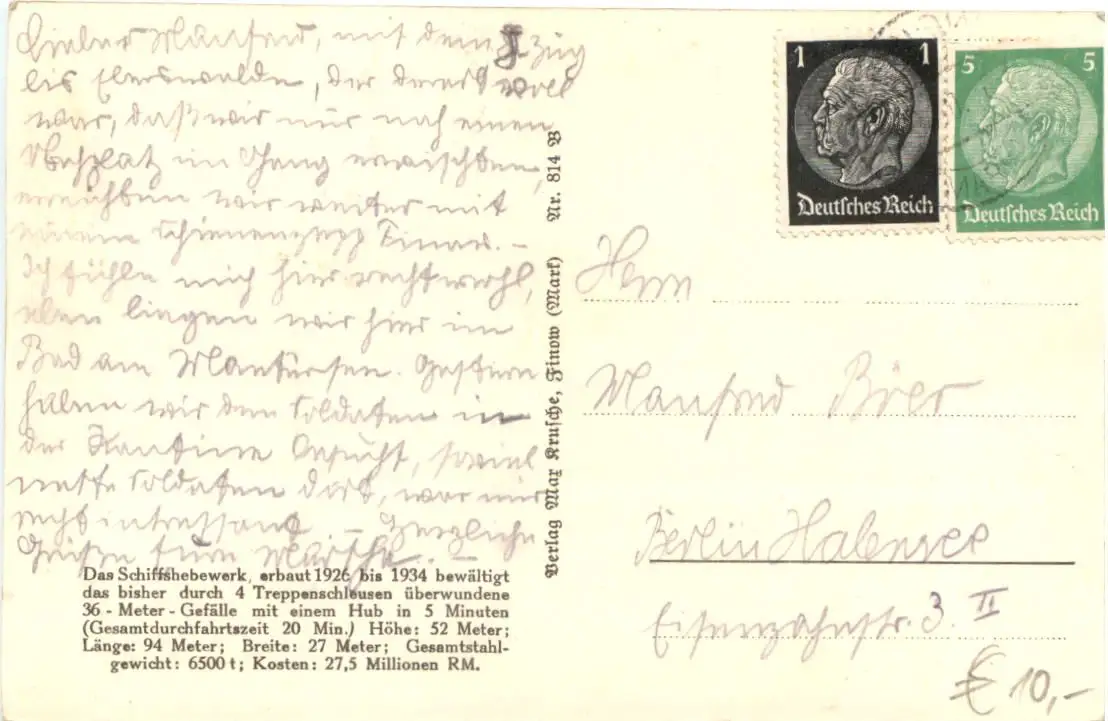 Lieber Manfred, mit dem Zug
bis Eberswalde, der derart voll
war, daß wir nur noch einen
Stehplatz im Gang erwischten,
erreichten wir weiter mit
einem Finow. –
Ich fühle mich hier recht wohl,
eben liegen wir hier im
Bad am. Gestern
haben wir den Soldaten in
der Kantine besucht, soviel
nette Soldaten dort, war mir
recht intressant. – Herzliche
Grüße –
Das Schiffshebewerk, erbaut 1926 bis 1934 bewältigt
das bisher durch 4 Treppenschleusen überwundene
36-Meter-Gefälle mit einem Hub in 5 Minuten
(Gesamtdurchfahrtszeit 20 Min.) Höhe: 52 Meter;
Länge: 94 Meter; Breite: 27 Meter; Gesamtstahl-
gewicht: 6500 t; Kosten: 27,5 Millionen RM.
Verlag Max Krusche, Finow (Mark) Nr. 814 B
1 1
Deutsches Reich
5 5
Deutsches Reich
Herrn
Manfred
Berlin Halensee
Eisenzahnstr. 3 II
€ 10,-